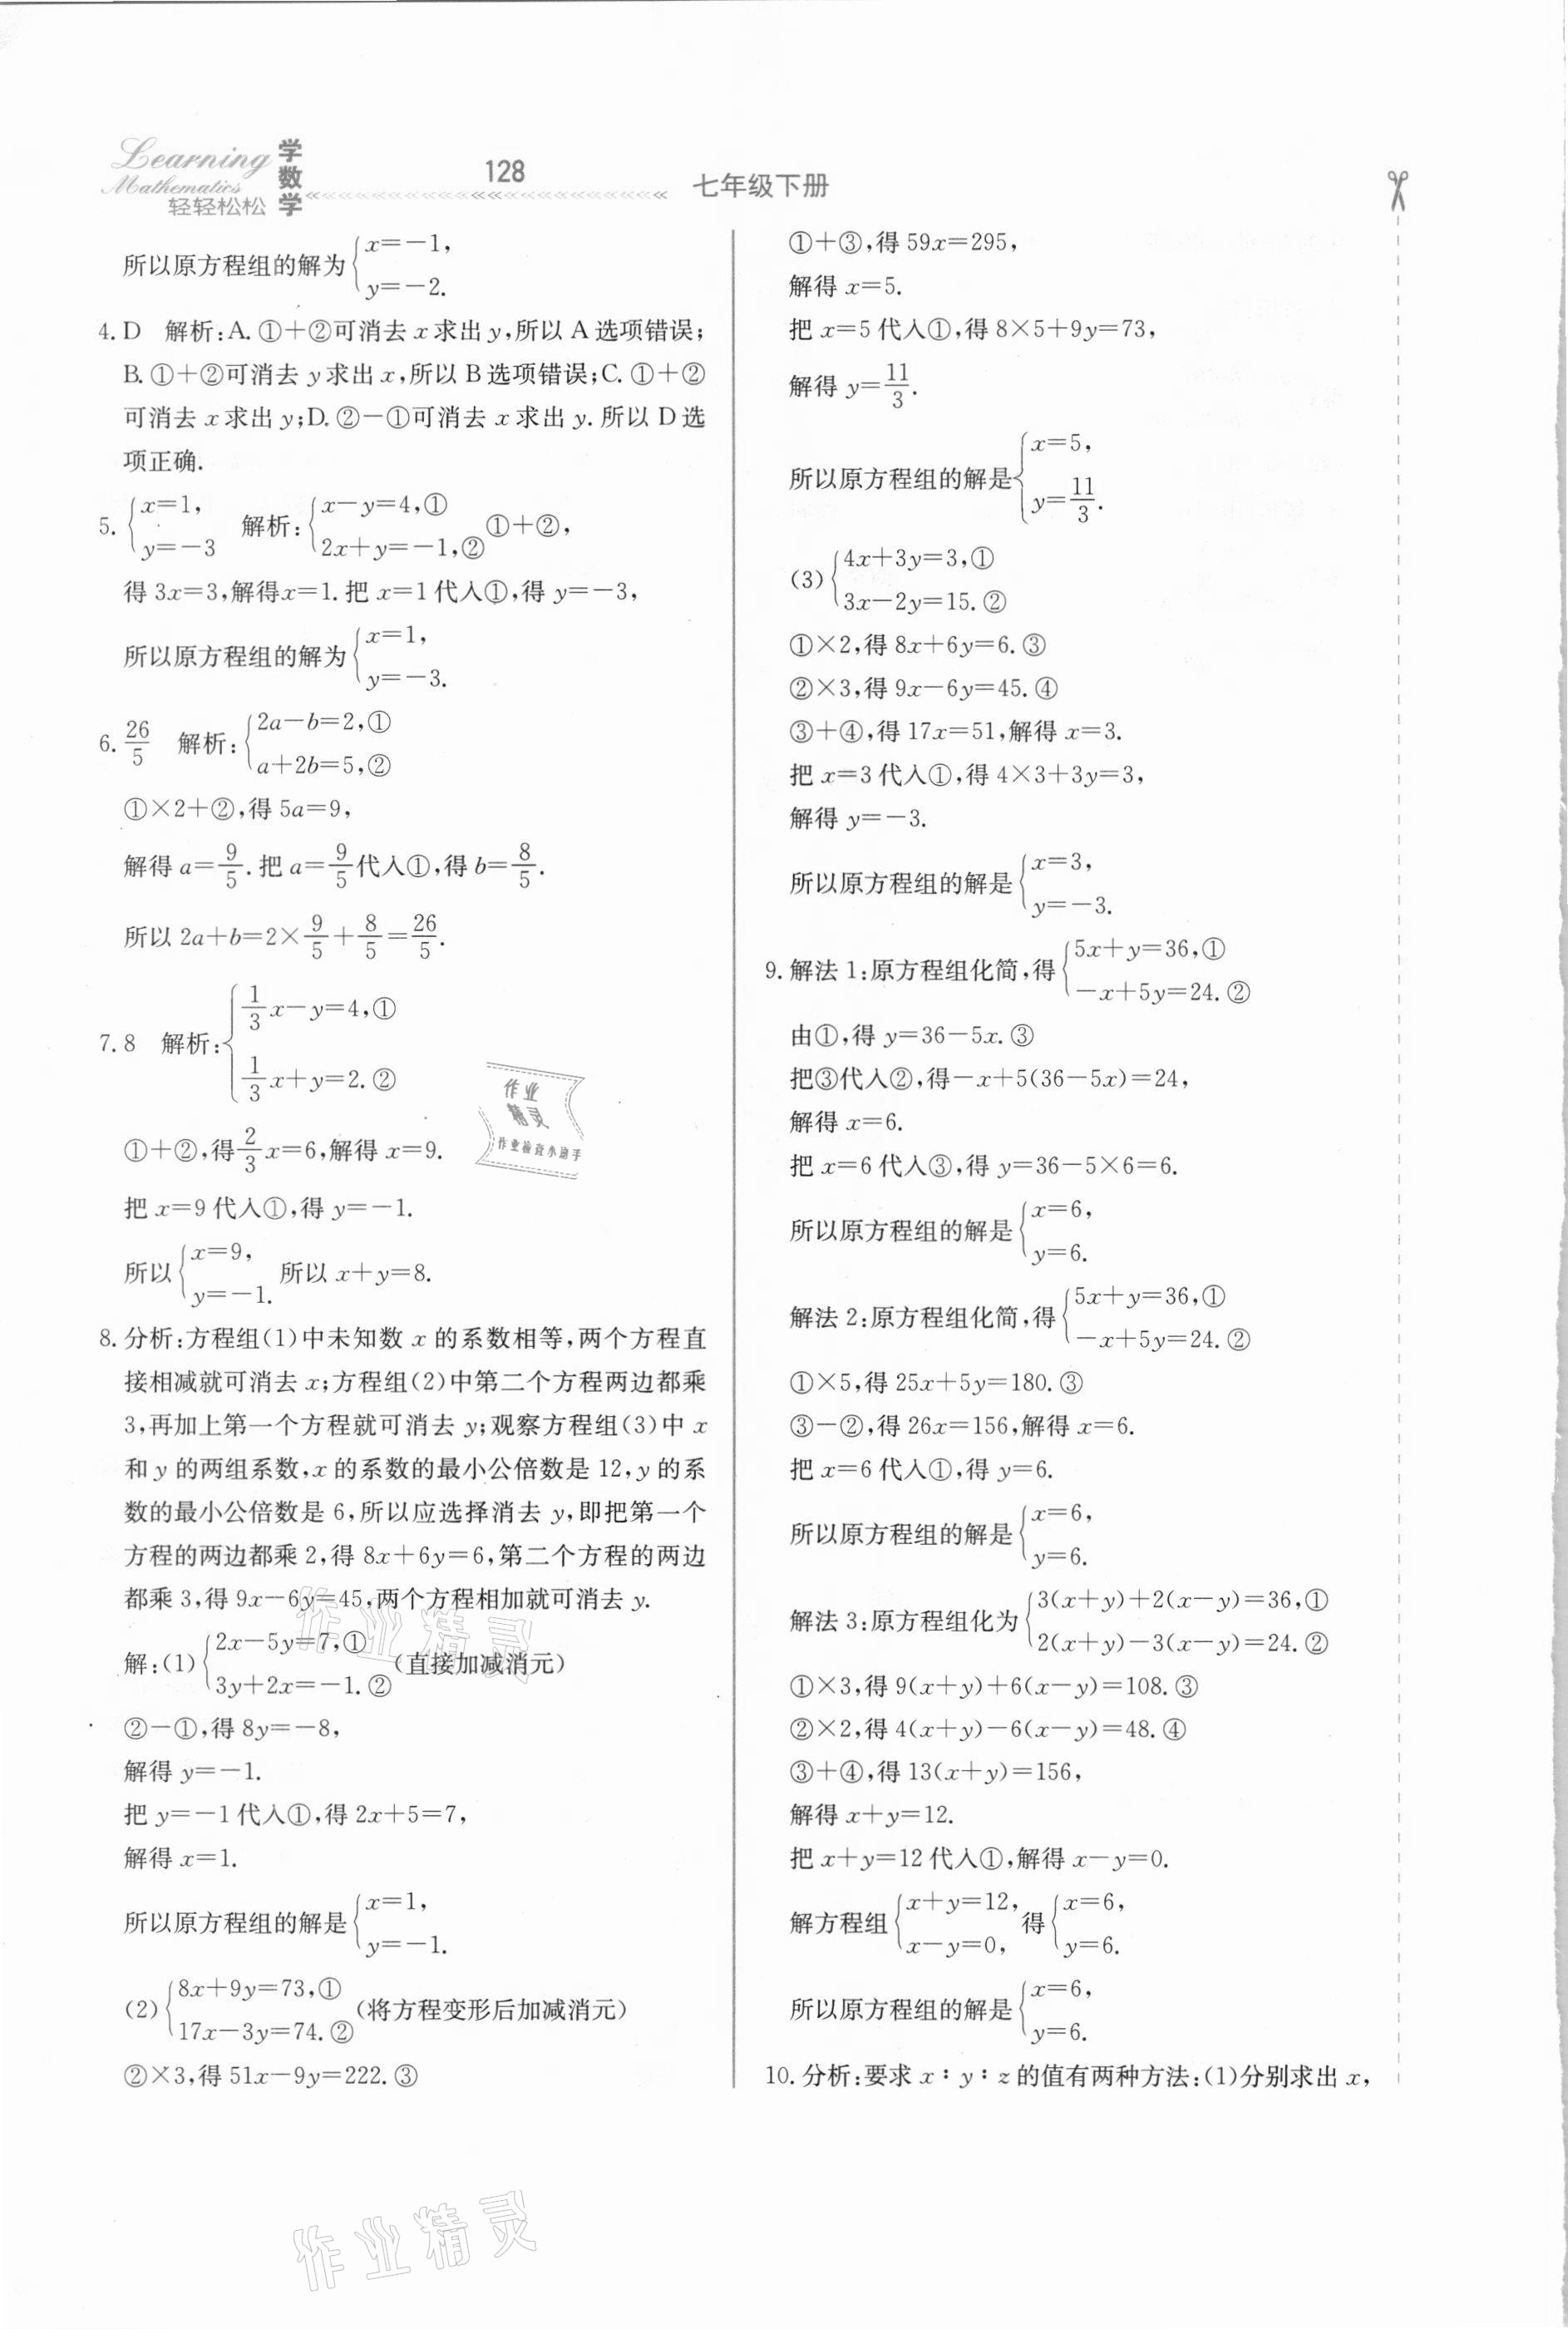 Learning
Mathematics
轻轻松松
学数学
128
七年级下册
所以原方程组的解为{x=-1,
y=-2.
4. D 解析:A. ①+②可消去 x 求出 y,所以 A 选项错误;
B. ①+②可消去 y 求出 x,所以 B 选项错误;C. ①+②
可消去 x 求出 y;D. ②-①可消去 x 求出 y. 所以 D 选
项正确.
5. {x=1,
y=-3 解析:{x-y=4,①
2x+y=-1,② ①+②,
得 3x=3,解得x=1. 把 x=1 代入①,得 y=-3,
所以原方程组的解为{x=1,
y=-3.
6. 26/5 解析:{2a-b=2,①
a+2b=5,②
①×2+②,得 5a=9,
解得 a=9/5. 把 a=9/5代入①,得 b=8/5.
所以 2a+b=2×9/5+8/5=26/5.
7. 8 解析:{1/3x-y=4,①
1/3x+y=2. ②
①+②,得2/3x=6,解得 x=9.
把 x=9 代入①,得 y=-1.
所以{x=9,
y=-1. 所以 x+y=8.
8. 分析:方程组(1)中未知数 x 的系数相等,两个方程直
接相减就可消去 x;方程组(2)中第二个方程两边都乘
3,再加上第一个方程就可消去 y;观察方程组(3)中 x
和 y 的两组系数,x 的系数的最小公倍数是 12,y 的系
数的最小公倍数是 6,所以应选择消去 y,即把第一个
方程的两边都乘 2,得 8x+6y=6,第二个方程的两边
都乘 3,得 9x-6y=45,两个方程相加就可消去 y.
解:(1){2x-5y=7,①
3y+2x=-1. ② (直接加减消元)
②-①,得 8y=-8,
解得 y=-1.
把 y=-1 代入①,得 2x+5=7,
解得 x=1.
所以原方程组的解是{x=1,
y=-1.
(2){8x+9y=73,①
17x-3y=74. ② (将方程变形后加减消元)
②×3,得 51x-9y=222. ③
①+③,得 59x=295,
解得 x=5.
把 x=5 代入①,得 8×5+9y=73,
解得 y=11/3.
所以原方程组的解是{x=5,
y=11/3.
(3){4x+3y=3,①
3x-2y=15. ②
①×2,得 8x+6y=6. ③
②×3,得 9x-6y=45. ④
③+④,得 17x=51,解得 x=3.
把 x=3 代入①,得 4×3+3y=3,
解得 y=-3.
所以原方程组的解是{x=3,
y=-3.
9. 解法 1:原方程组化简,得{5x+y=36,①
-x+5y=24. ②
由①,得 y=36-5x. ③
把③代入②,得-x+5(36-5x)=24,
解得 x=6.
把 x=6 代入③,得 y=36-5×6=6.
所以原方程组的解是{x=6,
y=6.
解法 2:原方程组化简,得{5x+y=36,①
-x+5y=24. ②
①×5,得 25x+5y=180. ③
③-②,得 26x=156,解得 x=6.
把 x=6 代入①,得 y=6.
所以原方程组的解是{x=6,
y=6.
解法 3:原方程组化为{3(x+y)+2(x-y)=36,①
2(x+y)-3(x-y)=24. ②
①×3,得 9(x+y)+6(x-y)=108. ③
②×2,得 4(x+y)-6(x-y)=48. ④
③+④,得 13(x+y)=156,
解得 x+y=12.
把 x+y=12 代入①,解得 x-y=0.
解方程组{x+y=12,
x-y=0, 得{x=6,
y=6.
所以原方程组的解是{x=6,
y=6.
10. 分析:要求 x∶y∶z 的值有两种方法:(1)分别求出 x,
作业
精灵
作业检查小助手
作业精灵
作业精灵